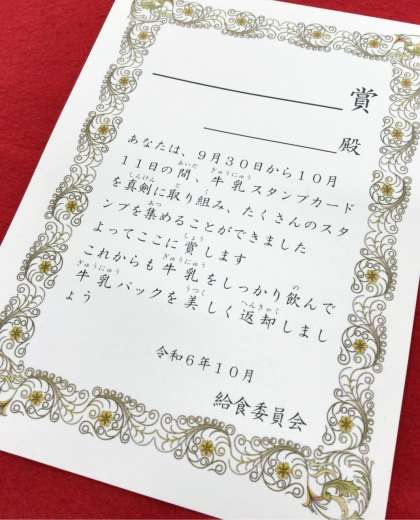 賞
殿
あなたは、９月３０日から１０月
１１日の間、牛乳スタンプカード
を真剣に取り組み、たくさんのスタ
ンプを集めることができました
よってここに賞します
これからも牛乳をしっかり飲んで
牛乳パックを美しく返却しまし
ょう
令和６年１０月
給食委員会